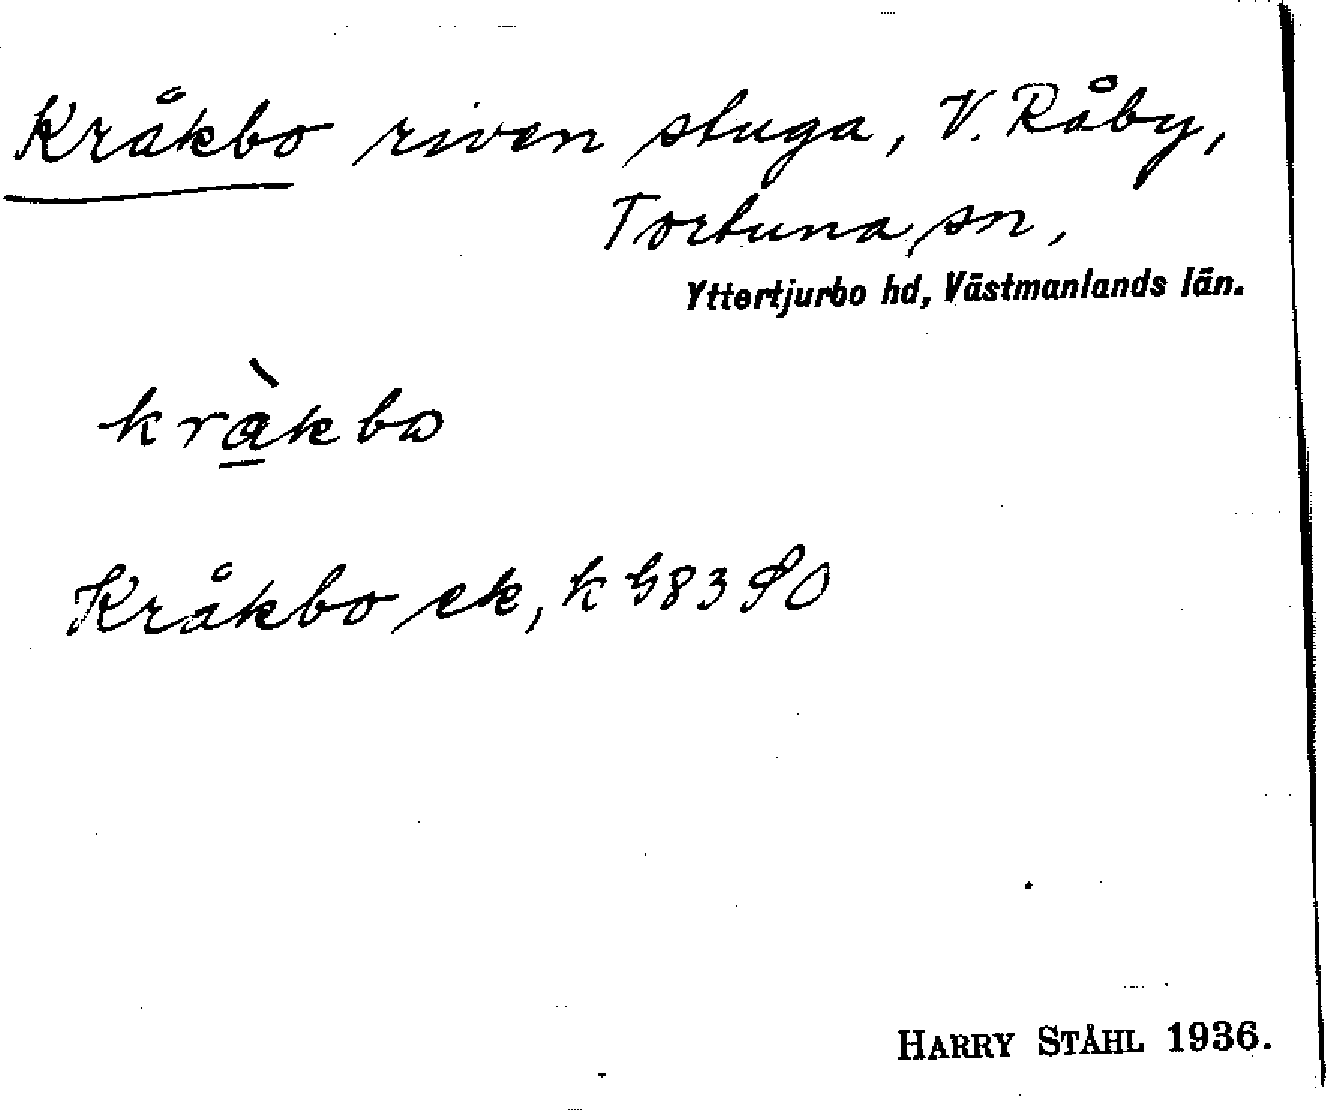 Kråkbo riven stuga, V. Råby,
Tortuna sn,
Yttertjurbo hd, Västmanlands län.
kràkbo
Kråkbo ek, k
HARRY STÅHL 1936.